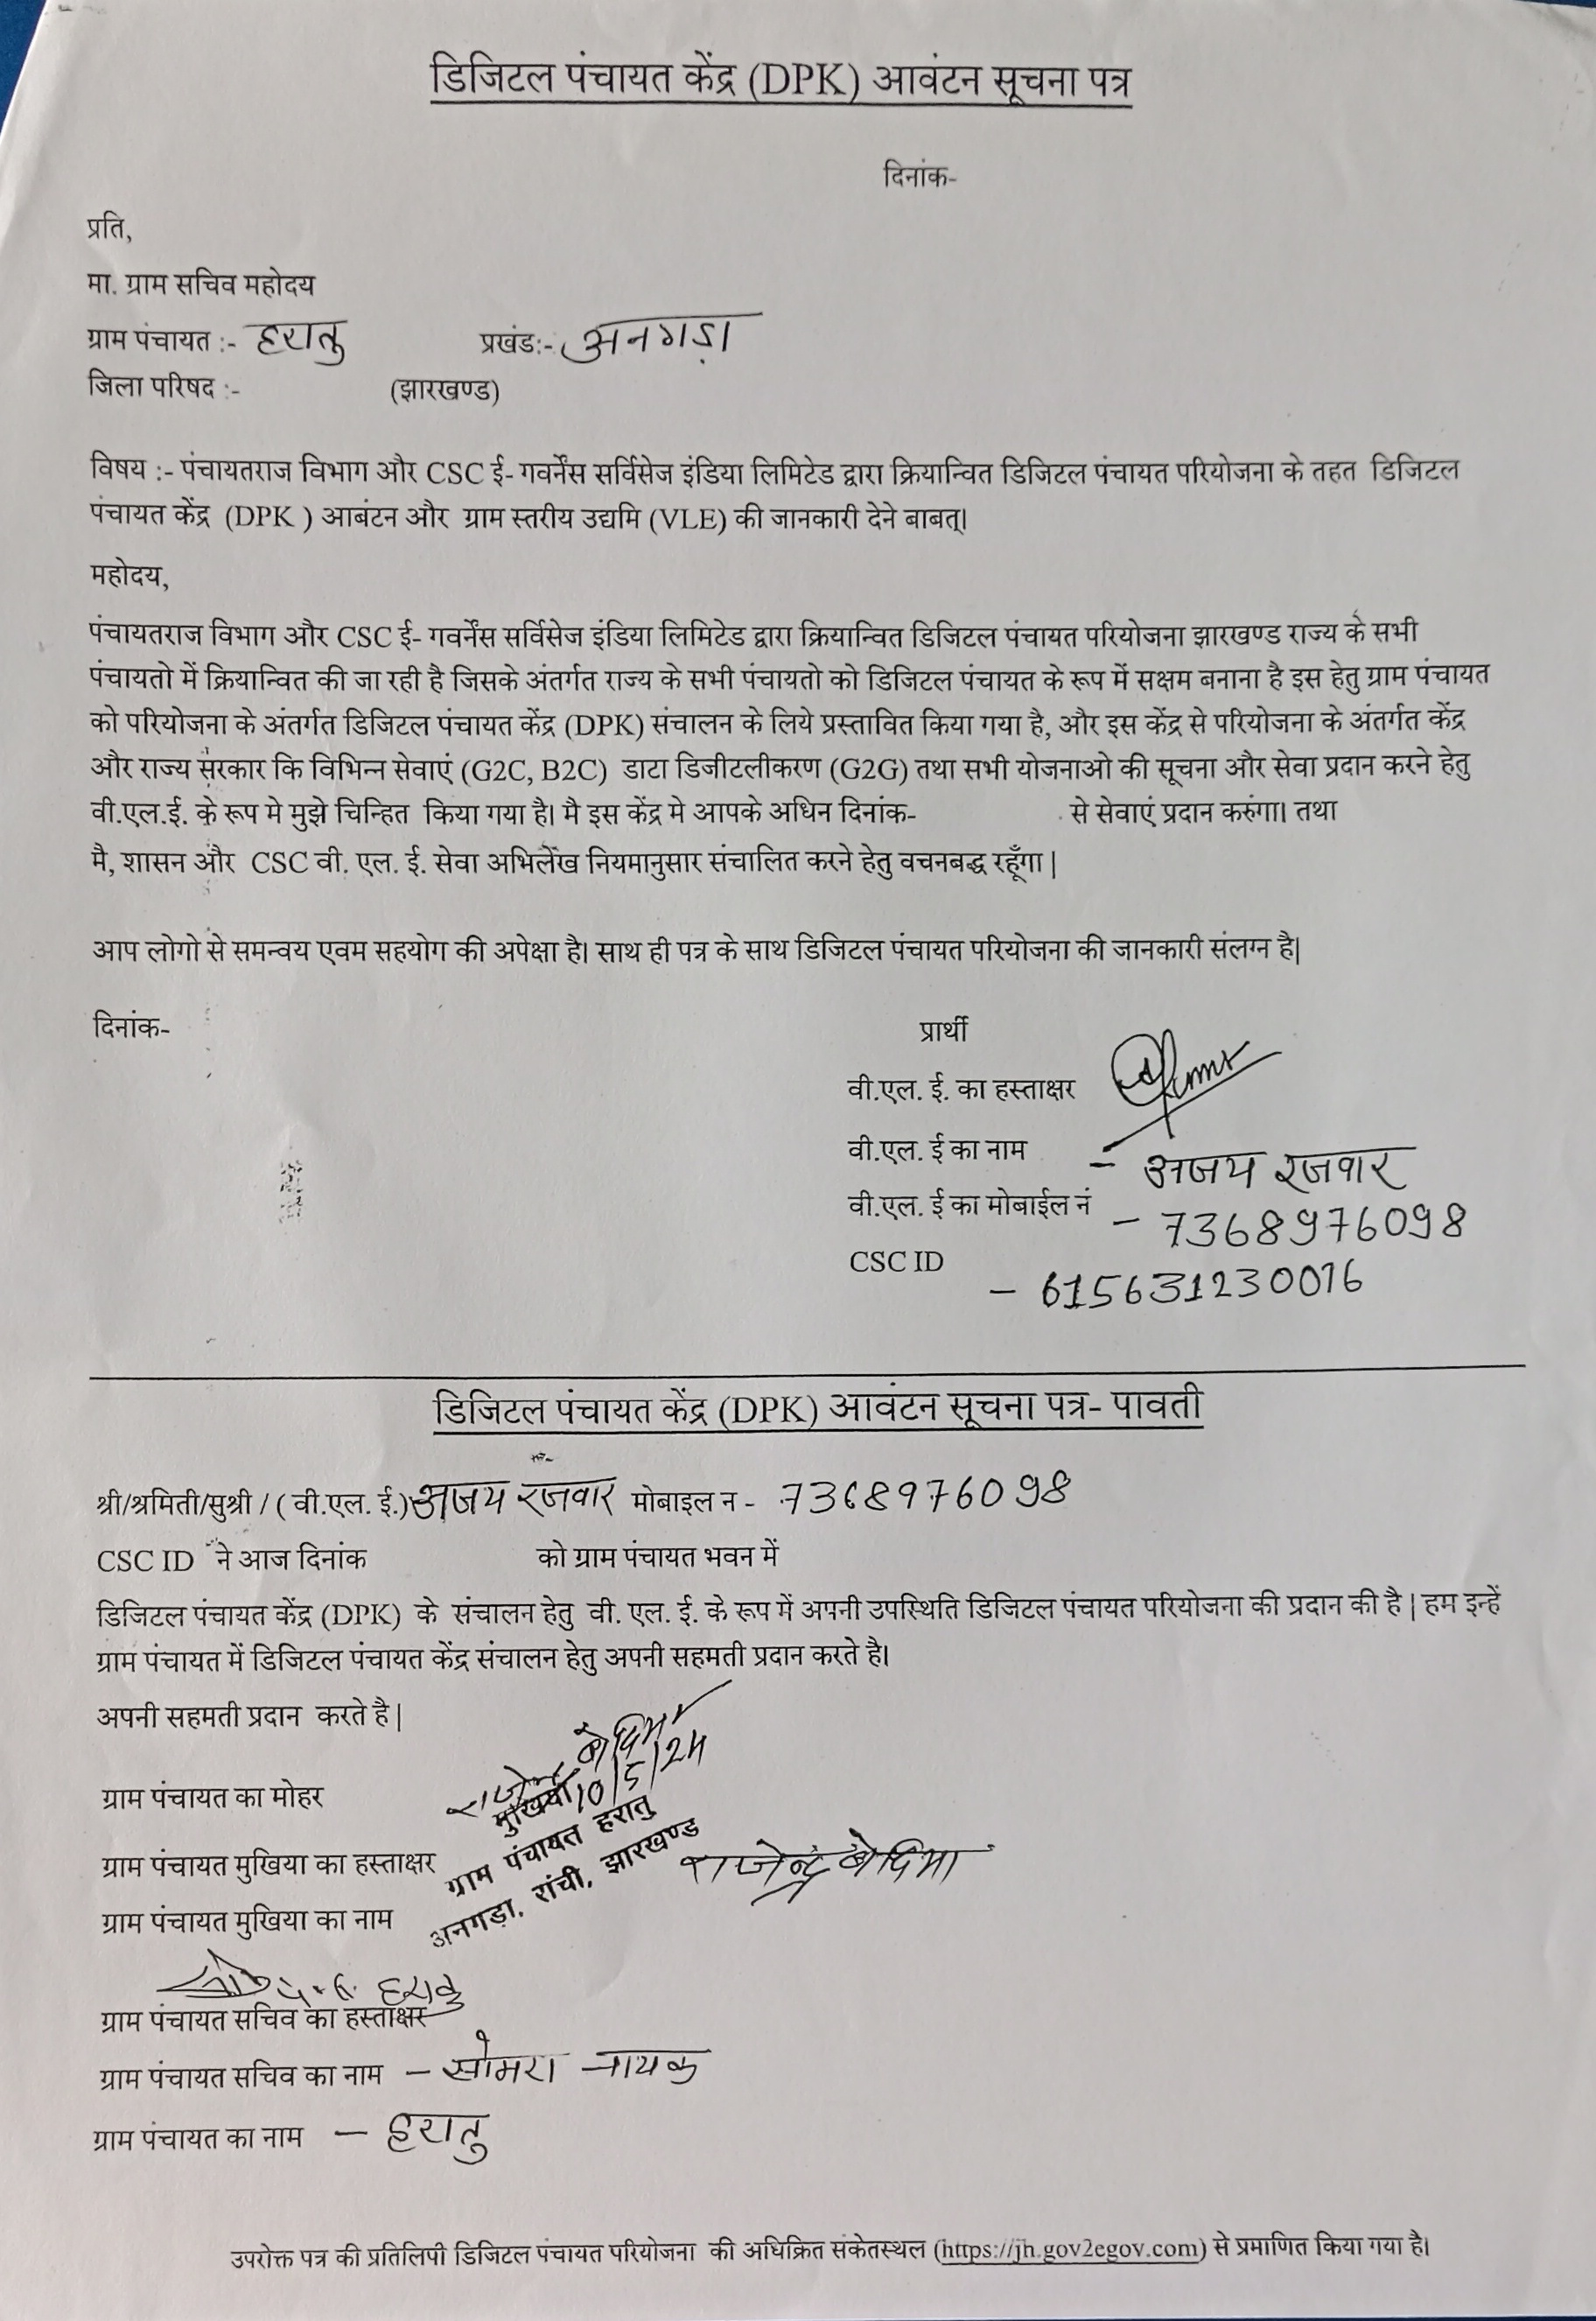 डिजिटल पंचायत केंद्र (DPK) आवंटन सूचना पत्र
दिनांक-
प्रति,
मा. ग्राम सचिव महोदय
ग्राम पंचायत :- हरातु प्रखंड:- अनगड़ा
जिला परिषद :- (झारखण्ड)
विषय :- पंचायतराज विभाग और CSC ई- गवर्नेंस सर्विसेज इंडिया लिमिटेड द्वारा क्रियान्वित डिजिटल पंचायत परियोजना के तहत डिजिटल
पंचायत केंद्र (DPK ) आबंटन और ग्राम स्तरीय उद्यमि (VLE) की जानकारी देने बाबत्।
महोदय,
पंचायतराज विभाग और CSC ई- गवर्नेंस सर्विसेज इंडिया लिमिटेड द्वारा क्रियान्वित डिजिटल पंचायत परियोजना झारखण्ड राज्य के सभी
पंचायतो में क्रियान्वित की जा रही है जिसके अंतर्गत राज्य के सभी पंचायतो को डिजिटल पंचायत के रूप में सक्षम बनाना है इस हेतु ग्राम पंचायत
को परियोजना के अंतर्गत डिजिटल पंचायत केंद्र (DPK) संचालन के लिये प्रस्तावित किया गया है, और इस केंद्र से परियोजना के अंतर्गत केंद्र
और राज्य सरकार कि विभिन्न सेवाएं (G2C, B2C) डाटा डिजीटलीकरण (G2G) तथा सभी योजनाओ की सूचना और सेवा प्रदान करने हेतु
वी.एल.ई. के रूप मे मुझे चिन्हित किया गया है। मै इस केंद्र मे आपके अधिन दिनांक- से सेवाएं प्रदान करुंगा। तथा
मै, शासन और CSC वी. एल. ई. सेवा अभिलेख नियमानुसार संचालित करने हेतु वचनबद्ध रहूँगा |
आप लोगो से समन्वय एवम सहयोग की अपेक्षा है। साथ ही पत्र के साथ डिजिटल पंचायत परियोजना की जानकारी संलग्न है|
दिनांक- प्रार्थी
वी.एल. ई. का हस्ताक्षर
वी.एल. ई का नाम - अजय रजवार
वी.एल. ई का मोबाईल नं - 7368976098
CSC ID - 615631230016
डिजिटल पंचायत केंद्र (DPK) आवंटन सूचना पत्र- पावती
श्री/श्रमिती/सुश्री / ( वी.एल. ई.) अजय रजवार मोबाइल न - 7368976098
CSC ID ने आज दिनांक को ग्राम पंचायत भवन में
डिजिटल पंचायत केंद्र (DPK) के संचालन हेतु वी. एल. ई. के रूप में अपनी उपस्थिति डिजिटल पंचायत परियोजना की प्रदान की है | हम इन्हें
ग्राम पंचायत में डिजिटल पंचायत केंद्र संचालन हेतु अपनी सहमती प्रदान करते है।
अपनी सहमती प्रदान करते है |
राजेन्द्र बेदिया
10/5/24
ग्राम पंचायत का मोहर
मुखिया
ग्राम पंचायत हरातु
अनगड़ा, रांची, झारखण्ड
ग्राम पंचायत मुखिया का हस्ताक्षर राजेन्द्र बेदिया
ग्राम पंचायत मुखिया का नाम
हरातु
ग्राम पंचायत सचिव का हस्ताक्षर
ग्राम पंचायत सचिव का नाम - सोमरा नायक
ग्राम पंचायत का नाम - हरातु
उपरोक्त पत्र की प्रतिलिपी डिजिटल पंचायत परियोजना की अधिक्रित संकेतस्थल (https://jh.gov2egov.com) से प्रमाणित किया गया है।